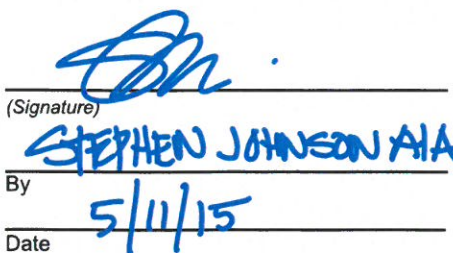 (Signature)
STEPHEN JOHNSON AIA
By
5/11/15
Date